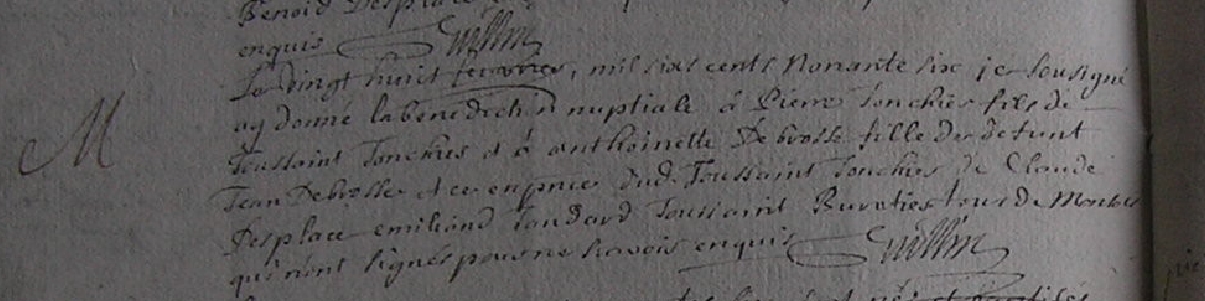 Benoid Desplace
enquis Guillin
Le vingt huit feuvrier, mil sixl cents Nonante six je sousigné
M
ay donné la benediction nuptiale á Pierre Tonchies fils de
Toussaint Tonchies et á anthoinette Debrosse fille de defunt
Jean Debrosse et ce en pnce dud. Toussaint Tonchies de Claude
Desplace emiliand Toussaint Buretier tous de
qui n'ont signés pour ne scavois enquis Guillin